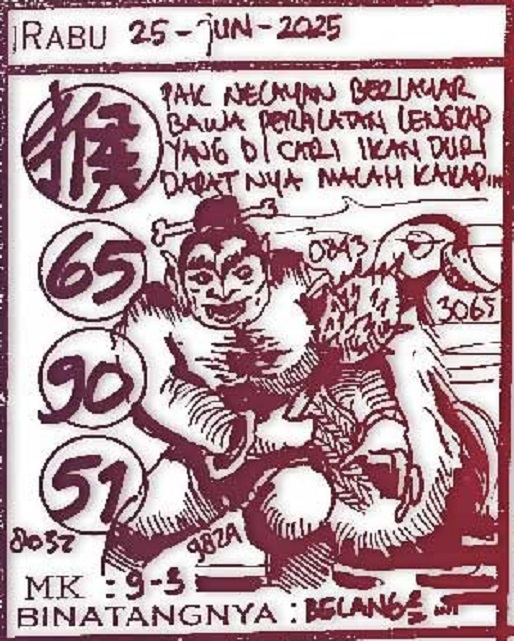 RABU 25-JUN-2025
猴
PAK NELAYAN BERLAYAR
BAWA PERALATAN LENGKAP
YANG DI CARI IKAN DURI
DAPAT NYA MALAH KAKAP...
65
0843
3065
90
51
8032
MK : 9-5
BINATANGNYA :